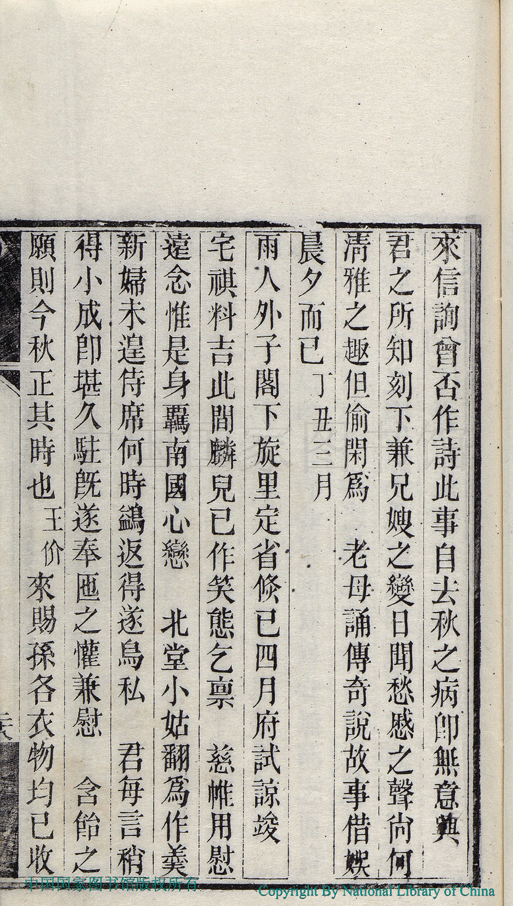 來信詢曾否作詩此事自去秋之病卽無意興
君之所知刻下兼兄嫂之變日聞愁慼之聲尙何
淸雅之趣但偷閑爲　老母誦傳奇說故事借娛
晨夕而已丁丑三月
雨人外子閣下旋里定省倐已四月府試諒竣
宅祺料吉此間麟兒已作笑態乞禀　慈帷用慰
遠念惟是身羈南國心戀　北堂小姑翻爲作羹
新婦未遑侍席何時鷁返得遂烏私　君每言稍
得小成卽堪久駐旣遂奉匜之懽兼慰　含飴之
願則今秋正其時也王价來賜孫各衣物均已收
中国国家图书馆版权所有
Copyright By National Library of China